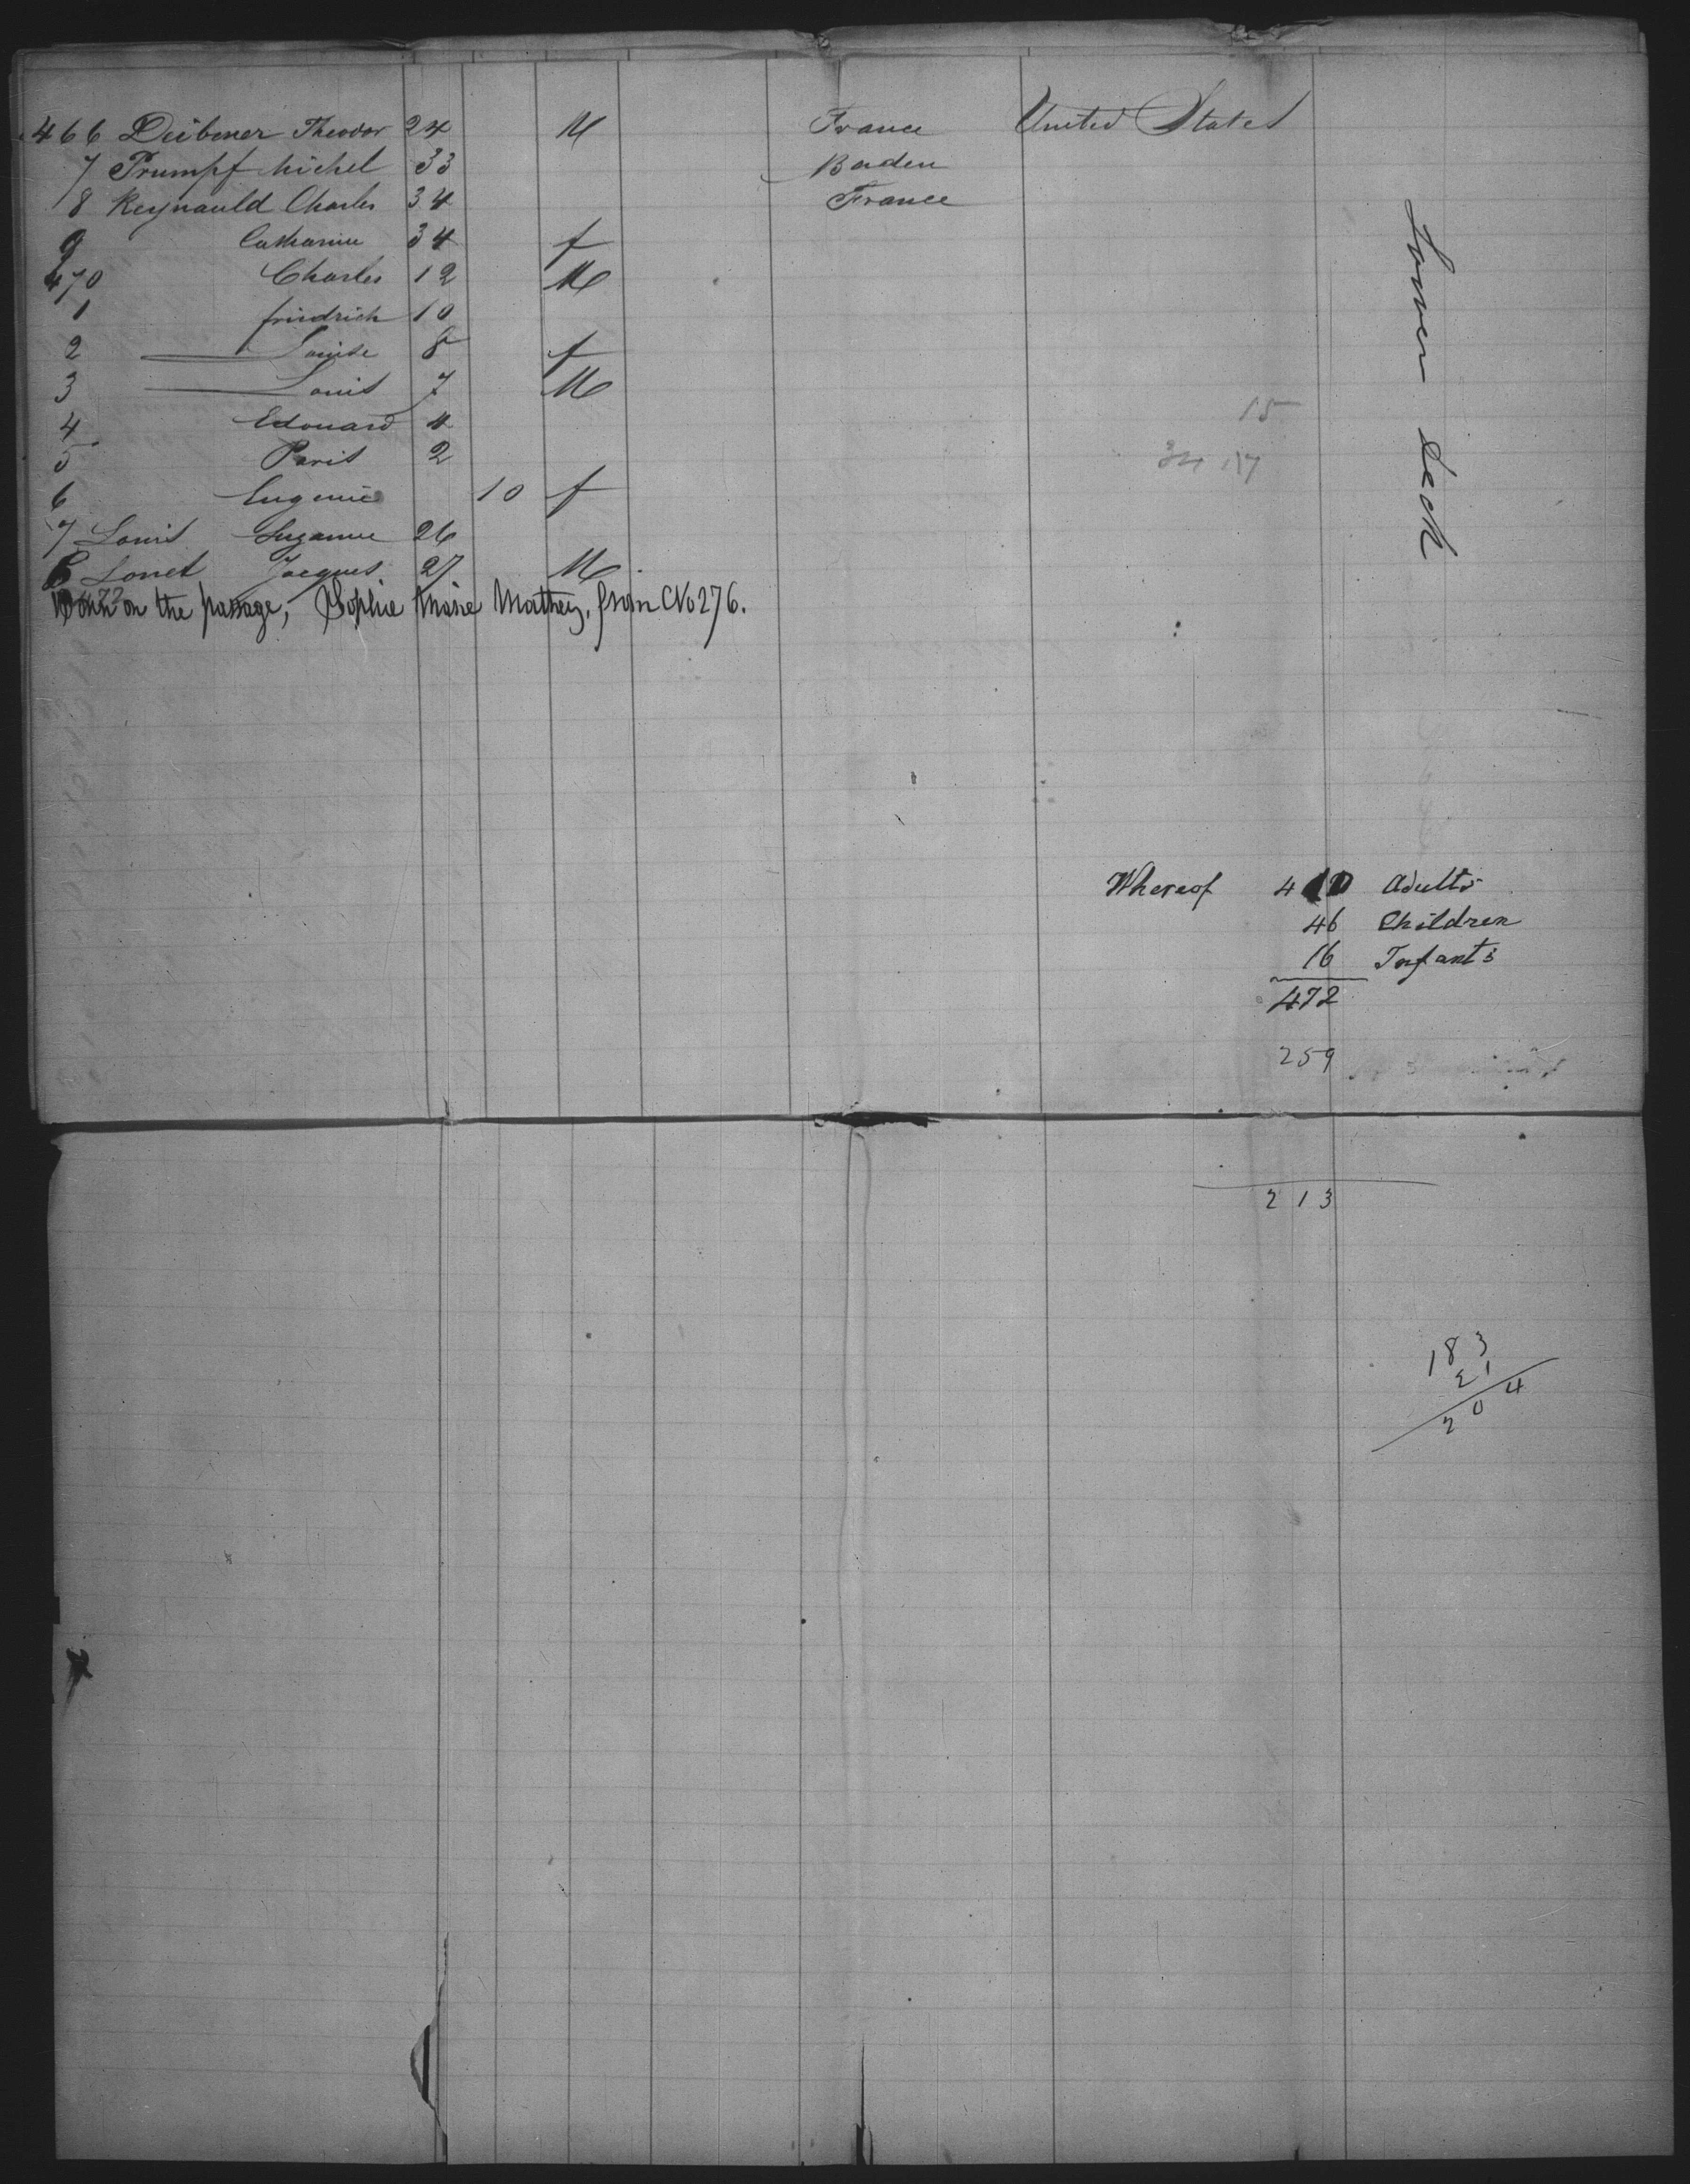 466 Deibener Theodor 24 M France United States
7 Prumpf Michel 33 Baden
8 Reynauld Charles 34 France
9 Catharine 34 f
470 Charles 12 M
1 friedrich 10
2 —— Louise 8 f
3 —— Louis 7 M
4 Edouard 4
5 Paris 2
6 Eugenie 10 f
7 Louis Suzanne 26
8 Louet Jacques 27 M
Born on the passage, Sophie Marie Mathey, from No 276.
Lower Deck
15
34 117
Whereof 410 Adults
46 Children
16 Infants
472
259
213
183
21
204